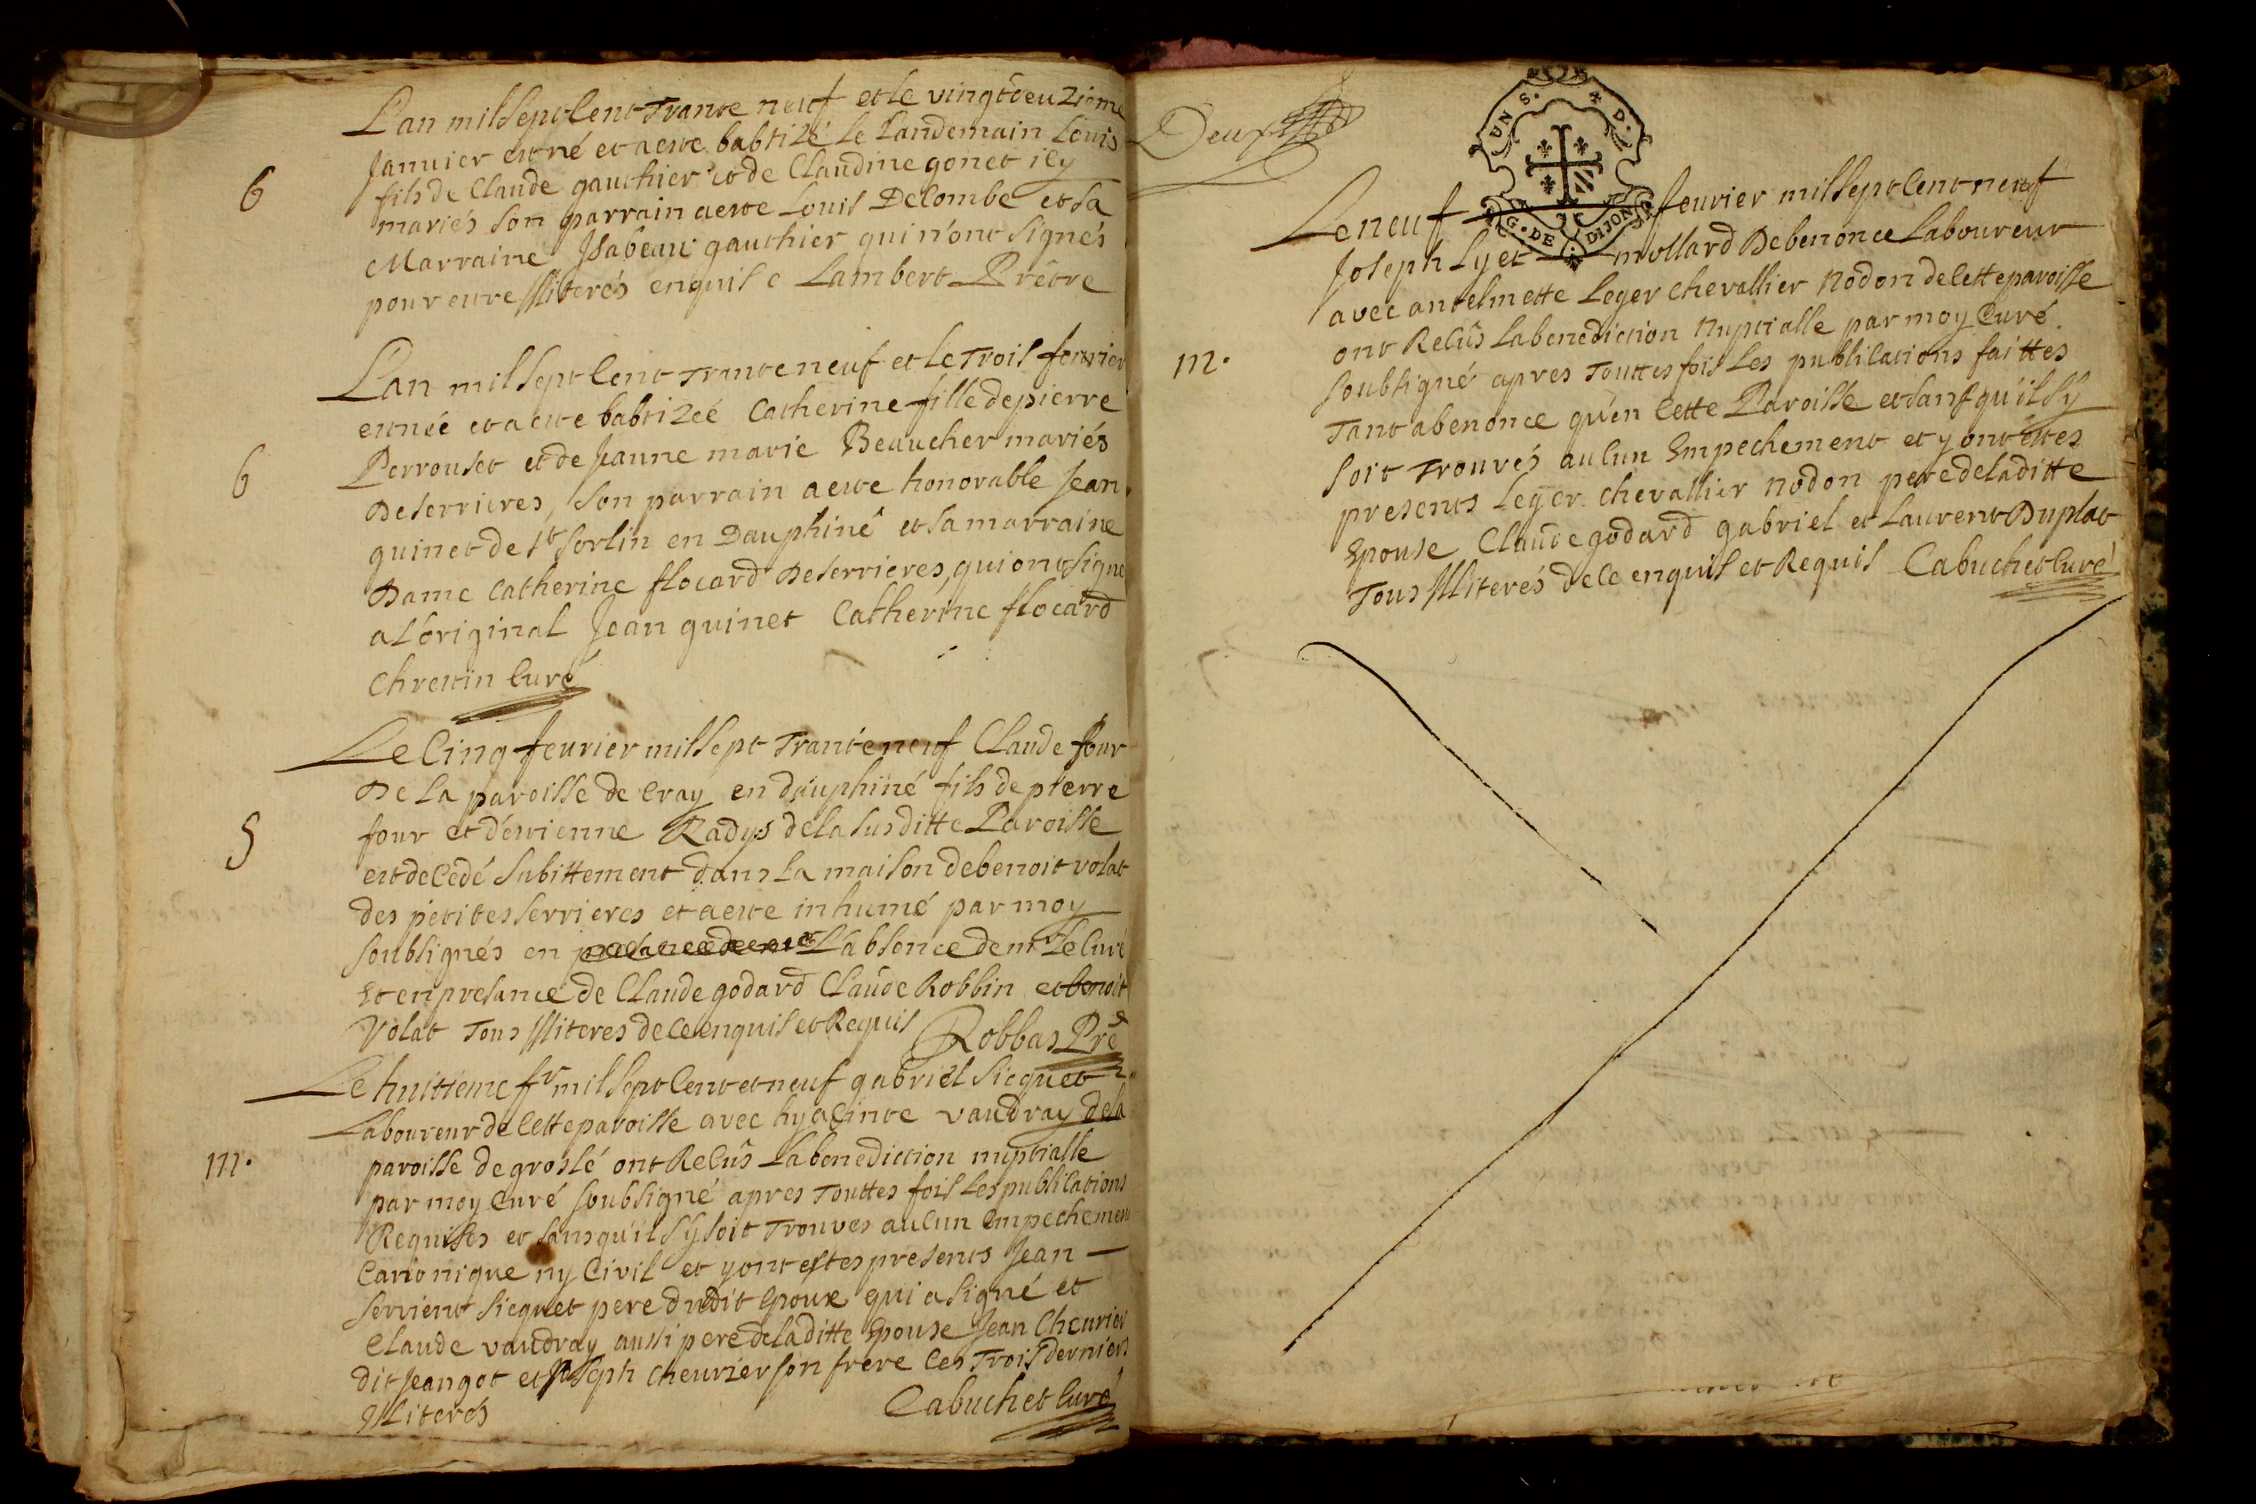 L'an mil Sept Cent Trante neuf et le vingt deuzieme
Janvier est né et a este babtizé le Landemain Louis
fils de Claude gauthier et de Claudine gonet icy
mariés son parrain a este Louis Decombe et sa
Marraine Isabeau gauthier qui n'ont signés
pour estre Illiterés enquis e Lambert Prêtre
6
L'an mil Sept Cent Trante neuf et le Trois feuvrier
est née et a este babtizeé Catherine fille de pierre
Perrouset et de Jeanne marie Beaucher mariés
De serrieres, son parrain a este honorable Jean
quinet de st sorlin en Dauphiné et sa marraine
Dame Catherine flocard De serrieres, qui ont signe
a L'original Jean quinet Catherine flocard
Chrestin Curé
6
Le Cinq feurier mil Sept Trante neuf Claude four
De La paroisse de Cray en dauphiné fils de pierre
four et d'estienne Radys de la susditte Paroisse
est deCedé subittement dans La maison de benoit volat
des petites serrieres et a este inhumé par moy
soubsignés en L'absence de mr Le Curé
Et en presance de Claude godard Claude Robbin et benoit
Volat Tous Illiteres de ce enquis et Requis Robbas Pre
S
Le huitieme fr mil Sept Cent et neuf gabriel sicquet
Laboureur de Cette paroisse avec hyaCinte vaudray de la
paroisse de groslé ont ReCûs La benediction nuptialle
par moy Curé soubsigné apres Touttes fois Les publications
Requises et sans qu'il s'y soit Trouves auCun Empechement
Canonique ny Civil et y ont estes presents Jean
servient sicquet pere dudit Epoux qui a signé et
Claude vaudray aussi pere de la ditte Epouse Jean Cheurier
dit Jeangot et Joseph Cheurier son frere Ces Trois derniers
Illiterés Cabuchet Curé
m.
Deux
UN S. D.
G. DE DIJON
Le neuf feurier mil Sept Cent neuf
Joseph Lyet mollard De benonce Laboureur
avec antelmette Leger Chevallier Nodon de Cette paroisse
ont ReCûs La benediction Nuptialle par moy Curé
soubsigné apres Touttes fois Les publications faittes
Tant a benonce qu'en Cette Paroisse et sans qu'il s'y
soit Trouvés auCun Empechement et y ont estes
presents Leger Chevallier Nodon pere de la ditte
Epouse Claude godard gabriel et Laurent Duplat
Tous Illiterés de Ce enquis et Requis Cabuchet Curé
m.